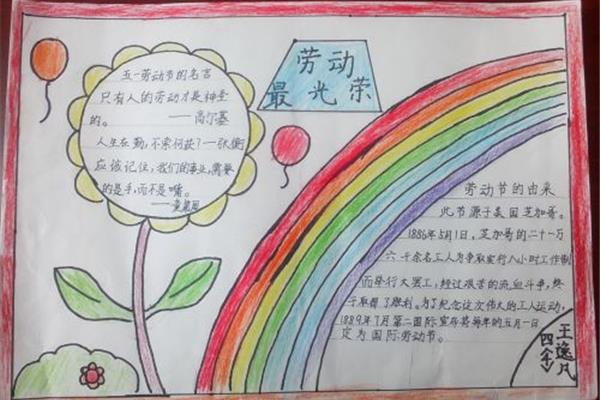 劳动
最光荣
五一劳动节的名言
只有人的劳动才是神圣
的。 ——高尔基
人生在勤,不索何获?—张衡
应该记住,我们的事业,需要
的是手,而不是嘴。
劳动节的由来
此节源于美国芝加哥。
1886年5月1日,芝加哥的二十一万
六千余名工人为争取实行八小时工作制
而举行大罢工,经过艰苦的流血斗争,终
于取得了胜利。为了纪念这次伟大的工人运动,
1889年7月第二国际宣布将每年的五月一日
定为国际劳动节。
四(4)
王逸凡